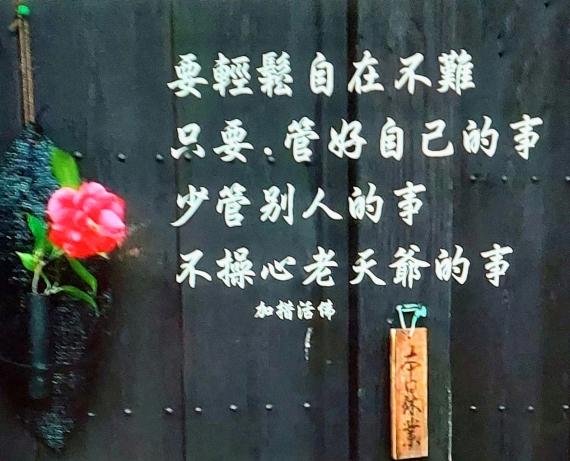 要輕鬆自在不難
只要.管好自己的事
少管別人的事
不操心老天爺的事
加措活佛
本日休業